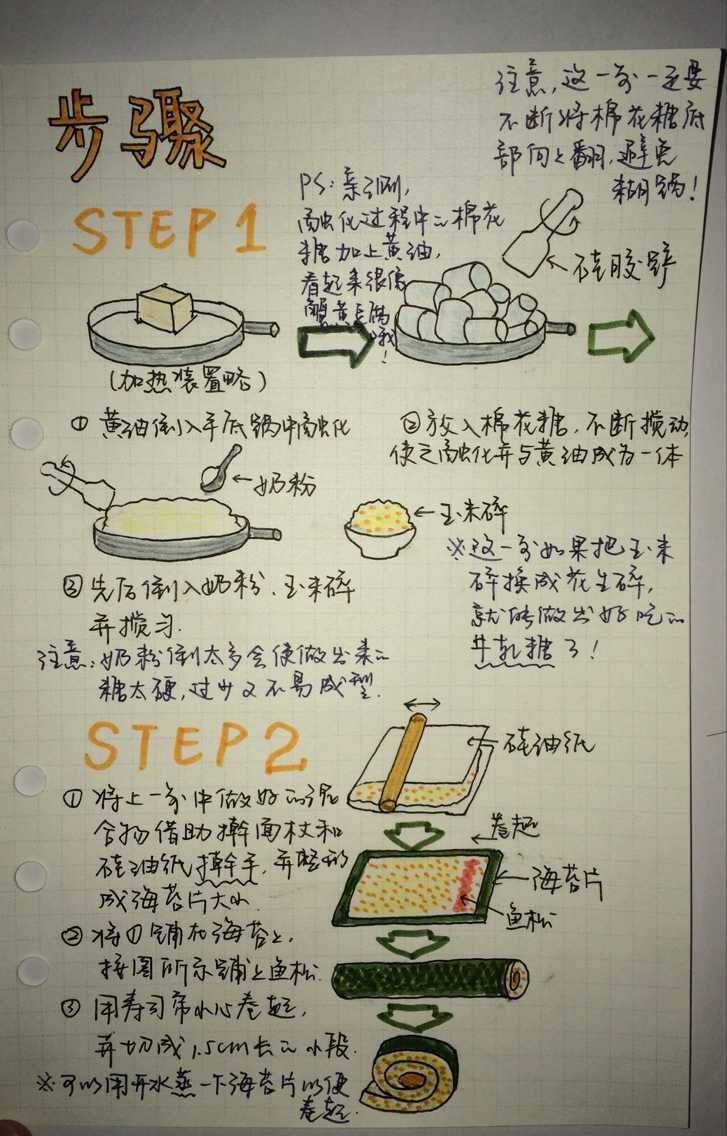 步骤
STEP 1
注意,这一步一定要
不断将棉花糖底
部向上翻,避免
糊锅!
PS:亲测,
融化过程中的棉花
糖加上黄油,
看起来很像
蟹黄豆腐
哦!
硅胶铲
(加热装置略)
① 黄油倒入平底锅中融化
② 放入棉花糖,不断搅动,
使之融化并与黄油成为一体
奶粉
玉米碎
③ 先后倒入奶粉、玉米碎
并搅匀.
注意:奶粉倒太多会使做出来的
糖太硬,过少又不易成型.
※这一步如果把玉米
碎换成花生碎,
就能做出好吃的
牛轧糖了!
STEP 2
硅油纸
① 将上一步中做好的混
合物借助擀面杖和
硅油纸擀平,并整形
成海苔片大小.
卷起
海苔片
鱼松
② 将①铺在海苔上,
按图所示铺上鱼松.
③ 用寿司帘小心卷起,
并切成1.5cm长的小段.
※可以用开水蒸一下海苔片以便
卷起.